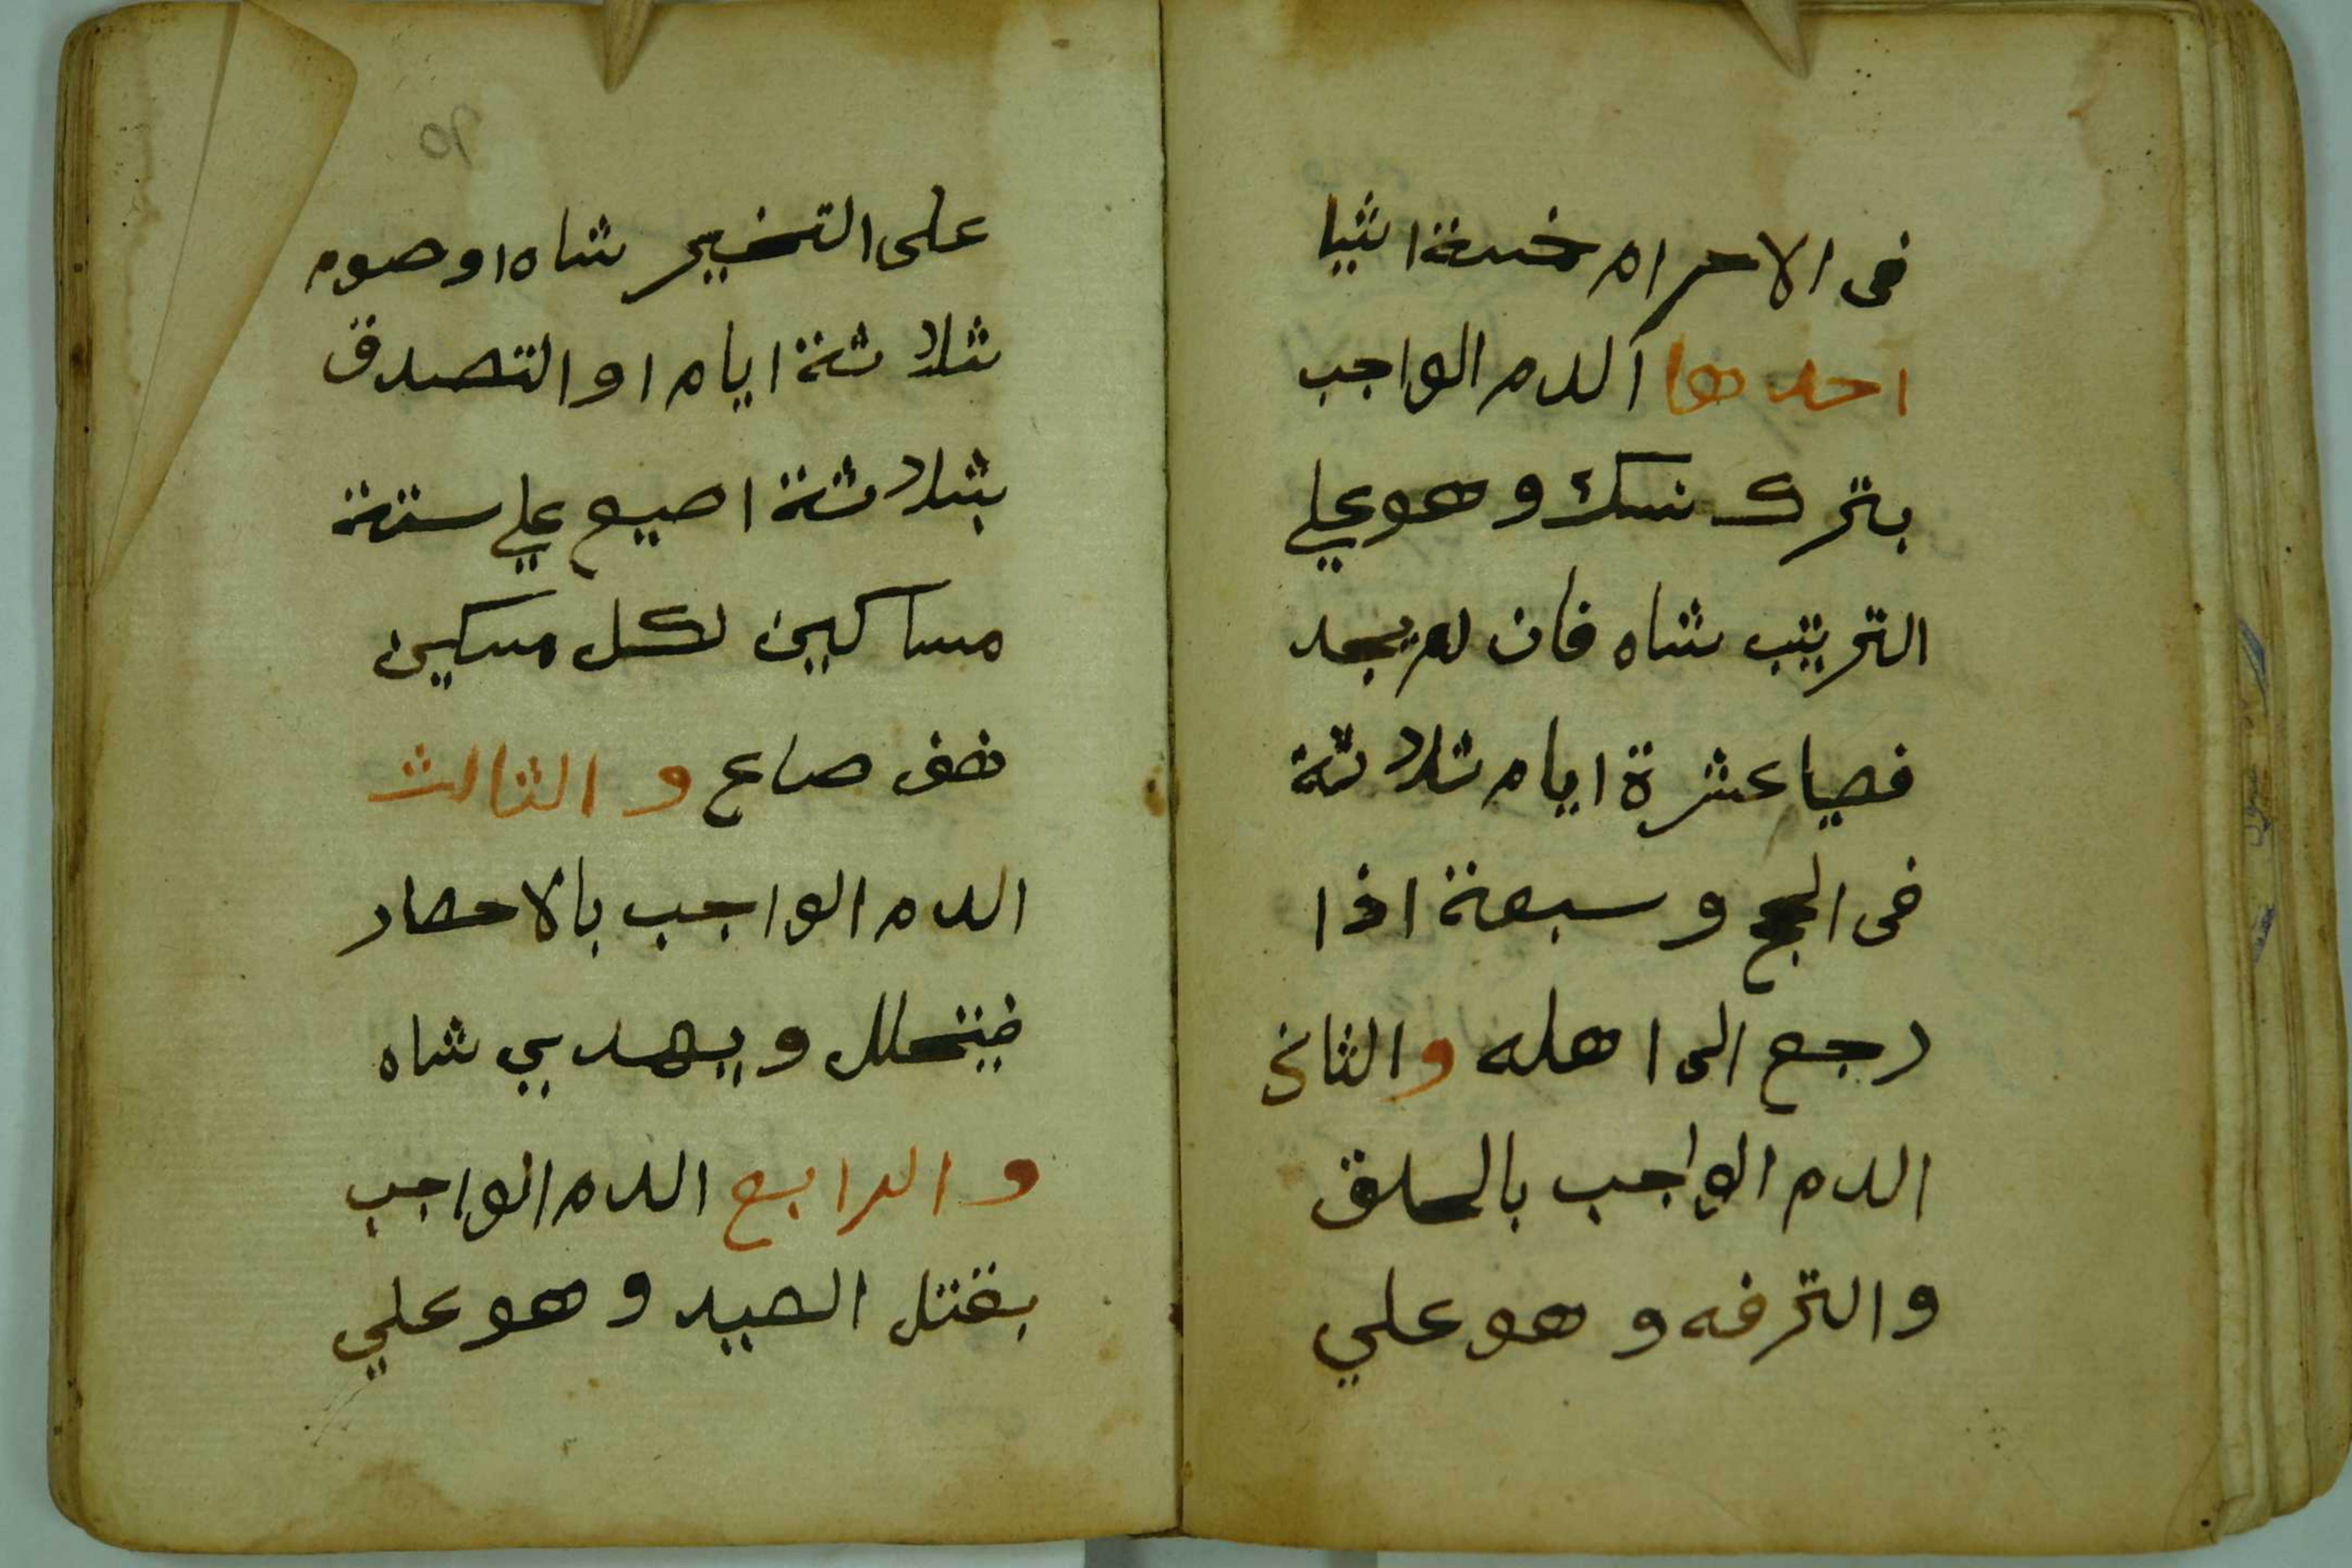 فى الاحرام خمسة اشيا
احدها الدم الواجب
بترك نسك وهو علي
التريتب شاه فان لم يجد
فصيا عشرة ايام ثلاثة
فى الحج وسبعة اذا
رجع الى اهله والثاني
الدم الواجب بالحلق
والترفه وهو علي
٩٥
على التخيير شاه او صوم
ثلاثة ايام او التصدق
بثلاثة اصيع علي ستة
مساكين لكل مسكين
نصف صاع والثالث
الدم الواجب بالاحصار
فيتحلل ويهدي شاه
والرابع الدم الواجب
بقتل الصيد وهو علي